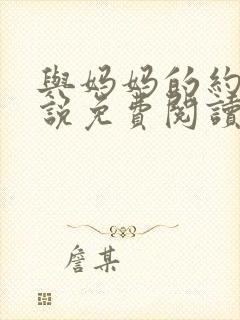 與媽媽的約
說免費閱讀
詹某